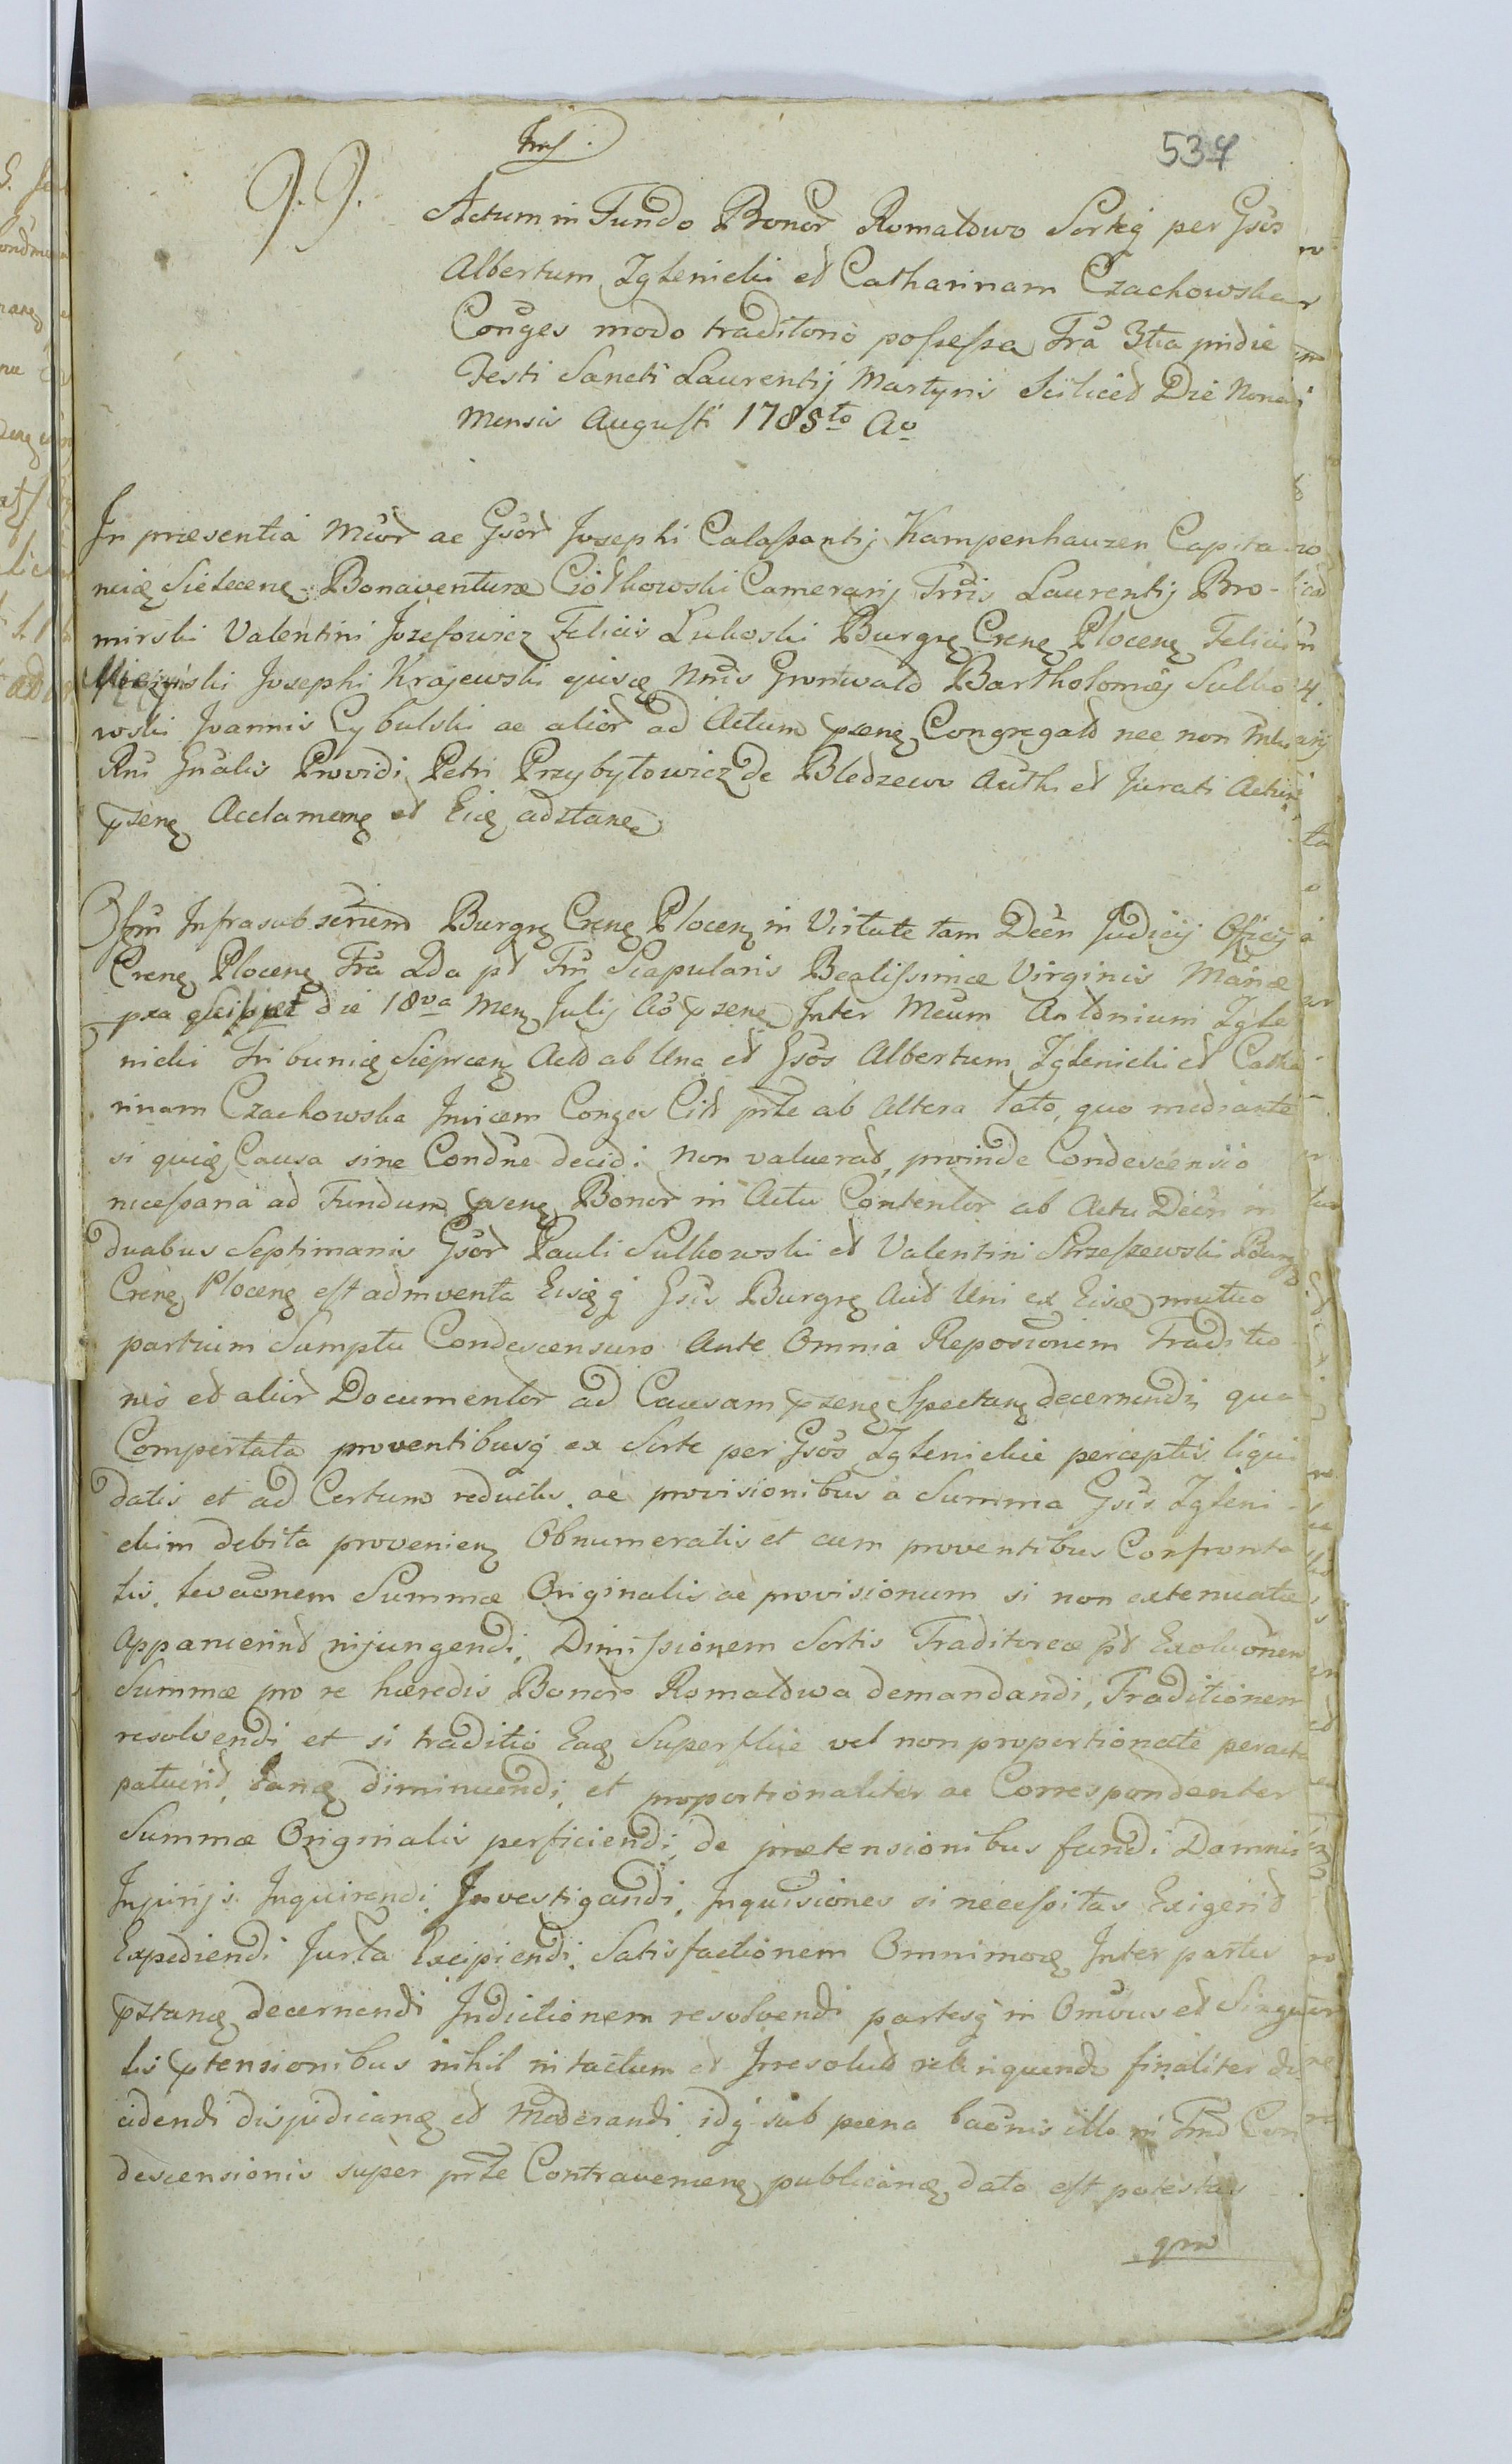 537
Actum in Fundo Bonor Romatowo Sorteq per Gsos
Albertum Zglenicki et Catharinam Czachowska
Conges modo traditorio possessa Fra 3tia pridie
Festi Sancti Laurentij Martyris Scilicet Die Nona
Mensis Augusti 1785to Ao
In præsentia Mcor ac Gsor Josephi Calasantij Kampenhauzen Capita
Bonaventuræ Ciołkowski Camerarij Laurentij Bro-
mirski Valentini Jozefowicz Felicis Lukoski Burgrę Crenę Plocenę Felicis
Josephi Krajewski Grunwald Bartholomæj Sulko
wski Joannis Cybulski ac alior ad Actum psenę Congregator nec non
Rni Gnalis Providi Petri Przybyłowicz de Bledzewo Auth et Jurati Actui
psenę Acclamenę et Eidę adstanę
Offm Infrasub seriem Burgrę Crenę Plocenę in Virtute tam Decri Judicij Officij
Crenę Plocenę Fra 2da pt Fm Scapularis Beatissimæ Virginis Mariæ
die 18va Menę Julij Ao psenę Inter Mcum Antonium Zgle
nicki Tribunidę Sieprcenę Actorē ab Una et Gsos Albertum Zglenicki et Catha
rinam Czachowska Invicem Conges Citt prte ab Altera lato, quo mediante
si quidę Causa sine Condne decidi non valuerat, proinde Condescensio
necessaria ad Fundum psenę Bonor in Actu Contentor ab Actu Decri in
duabus Septimanis Gsor Pauli Sulkowski et Valentini Strzeszewski Burg
Crenę Plocenę est adinventa Eisdęq Gsis Burgrę Aut Uni ex Eisdę mutuo
partium Sumptu Condescensuro Ante Omnia Reposionem Traditio
nis et alior Documentor ad Causam psenę Spectanę decernendi, qua
Comportata proventibusq ex Sorte per Gsos Zglenickie perceptis liqui
datis et ad Certum reductis, ac provisionibus a Summa Gsis Zgleni
ckim debita provenienę Obnumeratis et cum proventibus Confronta
tis, levaonem Summæ Originalis ac provisionum si non extenuatæ
Apparuerint injungendi, Dimissionem Sortis Traditoreæ pst Exoluonem
Summæ pro re hæredis Bonor Romatowa demandandi, Traditionem
resolvendi et si traditio Eadę Superflue vel non proportionate peracta
patuerit, Eandę diminuendi, et proportionaliter ac Correspondenter
Summæ Originalis perficiendi, de prætensionibus fundi Damnis
Injurijs Inquirendi, Investigandi, Inquisiones si necessitas Exigerit
Expediendi Jurta Excipiendi, Satisfactionem Omnimodę Inter partes
pstanę decernendi Indictionem resolvendi partesq in Omibus et Singu
lis ptensionibus nihil intactum et Irresolut relinquendo finaliter de
cidendi disjudicandę et Moderandi idq sub pœna baonis illo in Fmo Con
descensionis super prte Contravenienę publicandę data est potestas